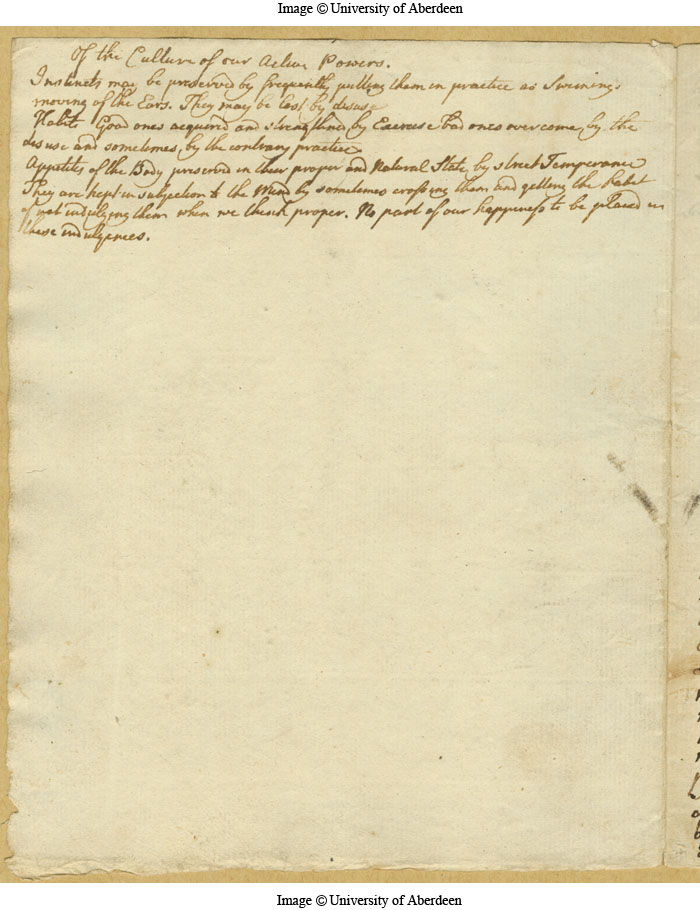 Image © University of Aberdeen
Of the Culture of our Active Powers.
Instincts may be preserved by frequently putting them in practice as Swiming
moving of the Ears. They may be lost by disuse
Habits Good ones acquired and strengthned by Exercise bad ones overcome by the
disuse and sometimes by the contrary practice
Appetites of the Body preserved in their proper and Natural State by strict Temperance
They are kept in subjection to the Mind by sometimes crossing them and getting the habit
of not indulging them when we think proper. No part of our happiness to be placed in
these indulgences.
Image © University of Aberdeen